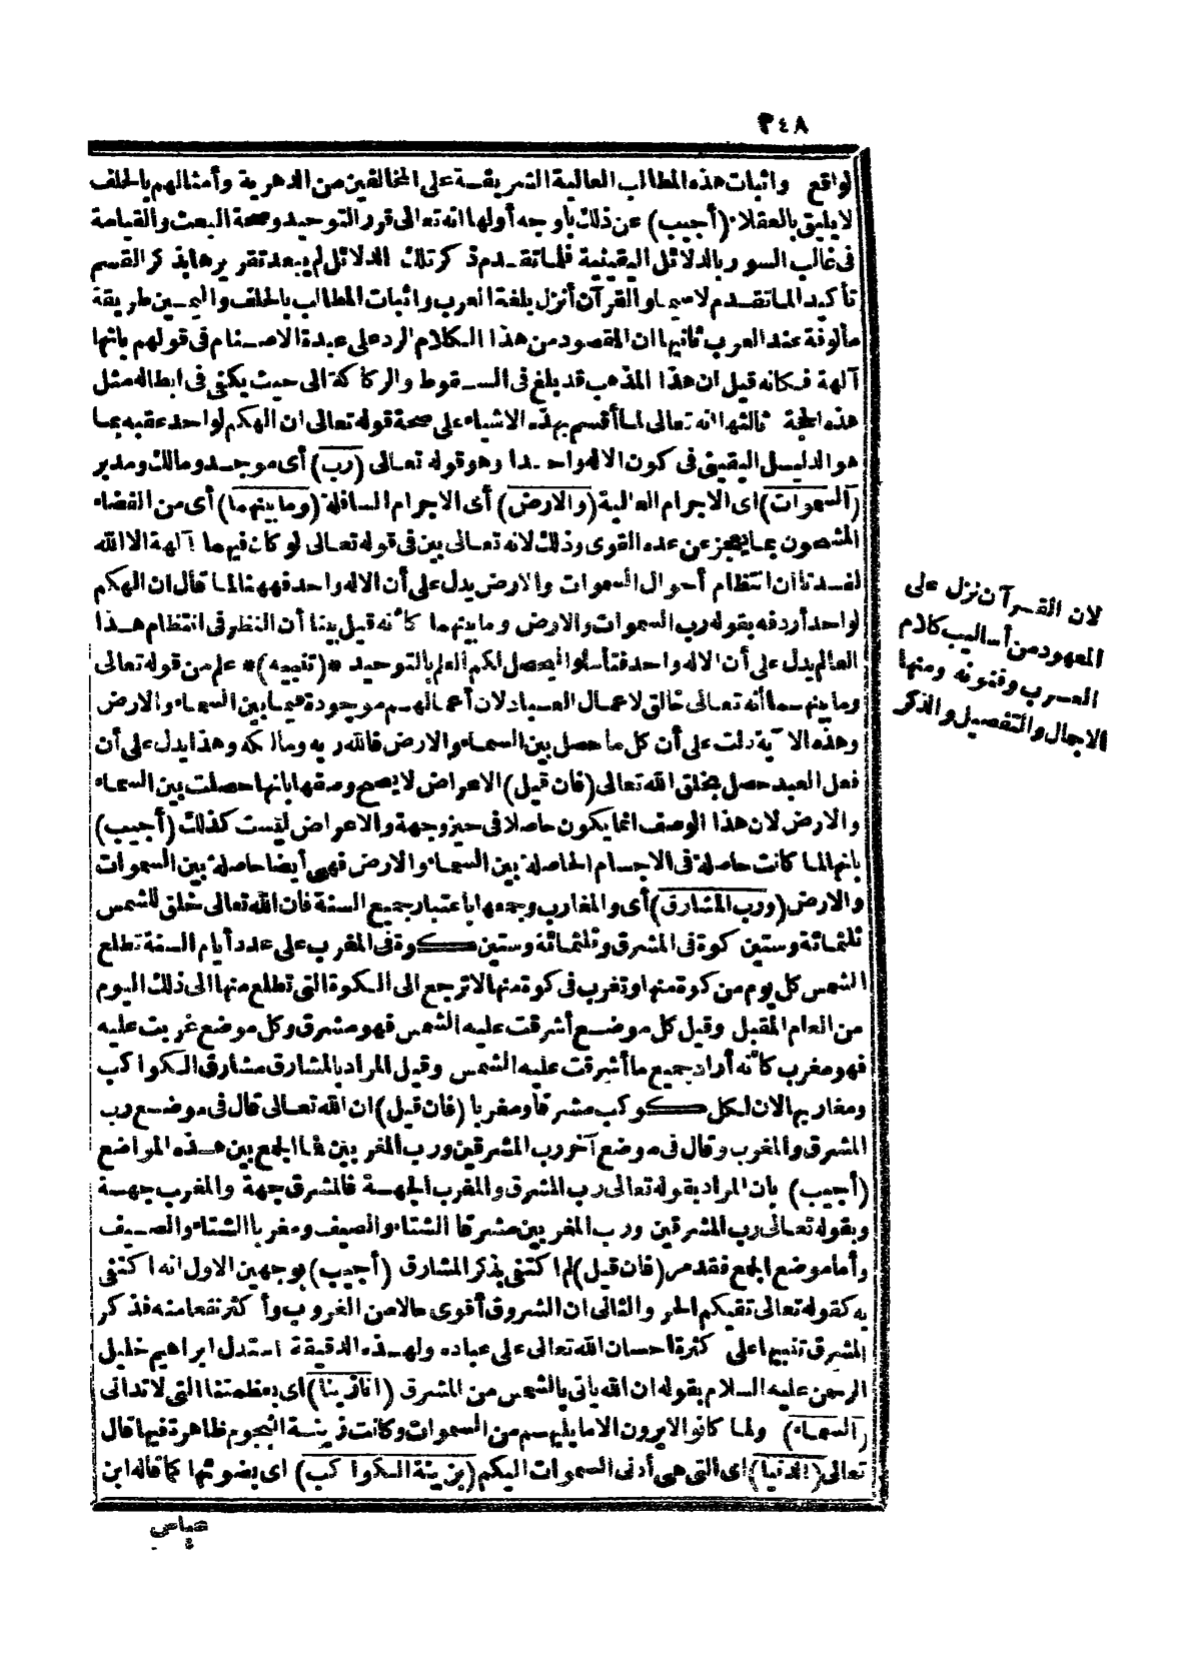 ٣٤٨
لواقع واثبات هذه المطالب العالية الشريفة على المخالفين من الدهرية وأمثالهم بالحلف
لا يليق بالعقلاء (أجيب) عن ذلك بأوجه أولها انه تعالى قرر التوحيد وصحة البعث والقيامة
فى غالب السور بالدلائل اليقينية فلما تقدم ذكر تلك الدلائل لم يبعد تقريرها بذكر القسم
تأكيد الما تقدم لا سيما والقرآن أنزل بلغة العرب واثبات المطالب بالحلف واليمين طريقة
مألوفة عند العرب ثانيها ان المقصود من هذا الكلام الرد على عبدة الاصنام فى قولهم بانها
آلهة فكانه قيل ان هذا المذهب قد بلغ فى السقوط والركاكة الى حيث يكفى فى ابطاله مثل
هذه الحجة ثالثها انه تعالى لما أقسم بهذه الاشياء على صحة قوله تعالى ان الهكم لواحد عقبه بما
هو الدليل اليقينى فى كون الاله واحدا وهو قوله تعالى (رب) أى موجد ومالك ومدبر
(السموات) اى الاجرام العالية (والارض) أى الاجرام السافلة (وما بينهما) أى من الفضاء
المشحون بما يعجز عن عده القوى وذلك لانه تعالى بين فى قوله تعالى لو كان فيهما آلهة الا الله
لفسدتا ان انتظام أحوال السموات والارض يدل على أن الاله واحد فههنا لما قال ان الهكم
لواحد أردفه بقوله رب السموات والارض وما بينهما كأنه قيل بينا أن النظر فى انتظام هذا
العالم يدل على أن الاله واحد فتأملوا ليحصل لكم العلم بالتوحيد *(تنبيه)* علم من قوله تعالى
وما بينهما أنه تعالى خالق لاعمال العباد لان أعمالهم موجودة فيما بين السماء والارض
وهذه الآية دلت على أن كل ما حصل بين السماء والارض فالله ربه ومالكه وهذا يدل على أن
فعل العبد حصل بخلق الله تعالى (فان قيل) الاعراض لا يصح وصفها بانها حصلت بين السماء
والارض لان هذا الوصف انما يكون حاصلا فى حيز وجهة والاعراض ليست كذلك (أجيب)
بانها لما كانت حاصلة فى الاجسام الحاصلة بين السماء والارض فهى أيضا حاصلة بين السموات
والارض (ورب المشارق) أى والمغارب وجمعها باعتبار جميع السنة فان الله تعالى خلق للشمس
ثلثمائة وستين كوة فى المشرق وثلثمائة وستين كوة فى المغرب على عدد أيام السنة تطلع
الشمس كل يوم من كوة منها وتغرب فى كوة منها لا ترجع الى الكوة التى تطلع منها الى ذلك اليوم
من العام المقبل وقيل كل موضع أشرقت عليه الشمس فهو مشرق وكل موضع غربت عليه
فهو مغرب كأنه أراد جميع ما أشرقت عليه الشمس وقيل المراد بالمشارق مشارق الكواكب
ومغاربها لان لكل كوكب مشرقا ومغربا (فان قيل) ان الله تعالى قال فى موضع رب
المشرق والمغرب وقال فى موضع آخر رب المشرقين ورب المغربين فما الجمع بين هذه المواضع
(أجيب) بان المراد بقوله تعالى رب المشرق والمغرب الجهة فالمشرق جهة والمغرب جهة
وبقوله تعالى رب المشرقين ورب المغربين مشرقا الشتاء والصيف ومغربا الشتاء والصيف
وأما موضع الجمع فقد مر (فان قيل) لم اكتفى بذكر المشارق (أجيب) بوجهين الاول انه اكتفى
به كقوله تعالى تقيكم الحر والثانى ان الشروق أقوى حالا من الغروب وأكثر نفعا منه فذكر
المشرق تنبيها على كثرة احسان الله تعالى على عباده ولهذه الدقيقة استدل ابراهيم خليل
الرحمن عليه السلام بقوله ان الله ياتى بالشمس من المشرق (انا زينا) اى بعظمتنا التى لا تدانى
(السماء) ولما كانوا لا يرون الا ما يليهم من السموات وكانت زينة النجوم ظاهرة فيها قال
تعالى (الدنيا) اى التى هى أدنى السموات اليكم (بزينة الكواكب) اى بضوئها كما قاله ابن
عباس
لان القرآن نزل على
المعهود من أساليب كلام
العرب وفنونه ومنها
الاجمال والتفصيل والذكر